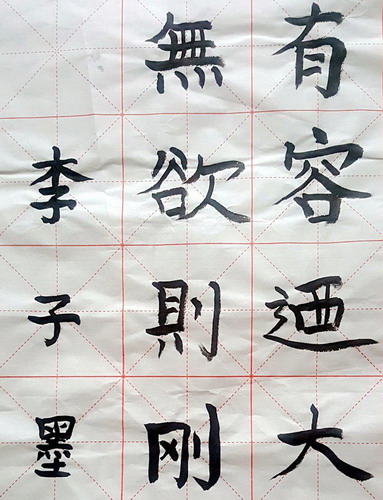 有容迺大
無欲則刚
李子墨